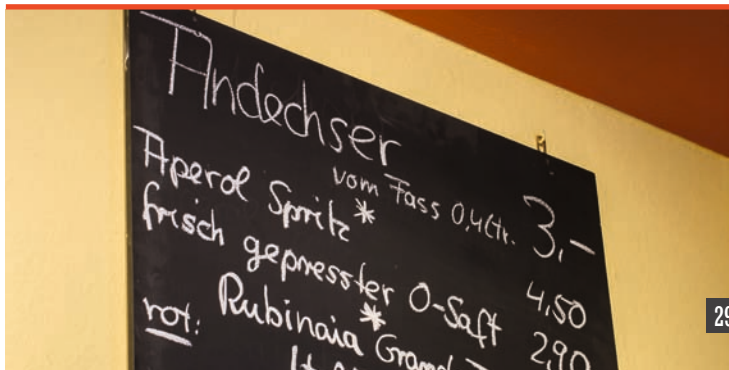 Andechser
vom Fass 0,4 Ltr. 3,–
Aperol Spritz 4,50
*
frisch gepresster O-Saft 2,90
*
rot: Rubinaia Grand
29